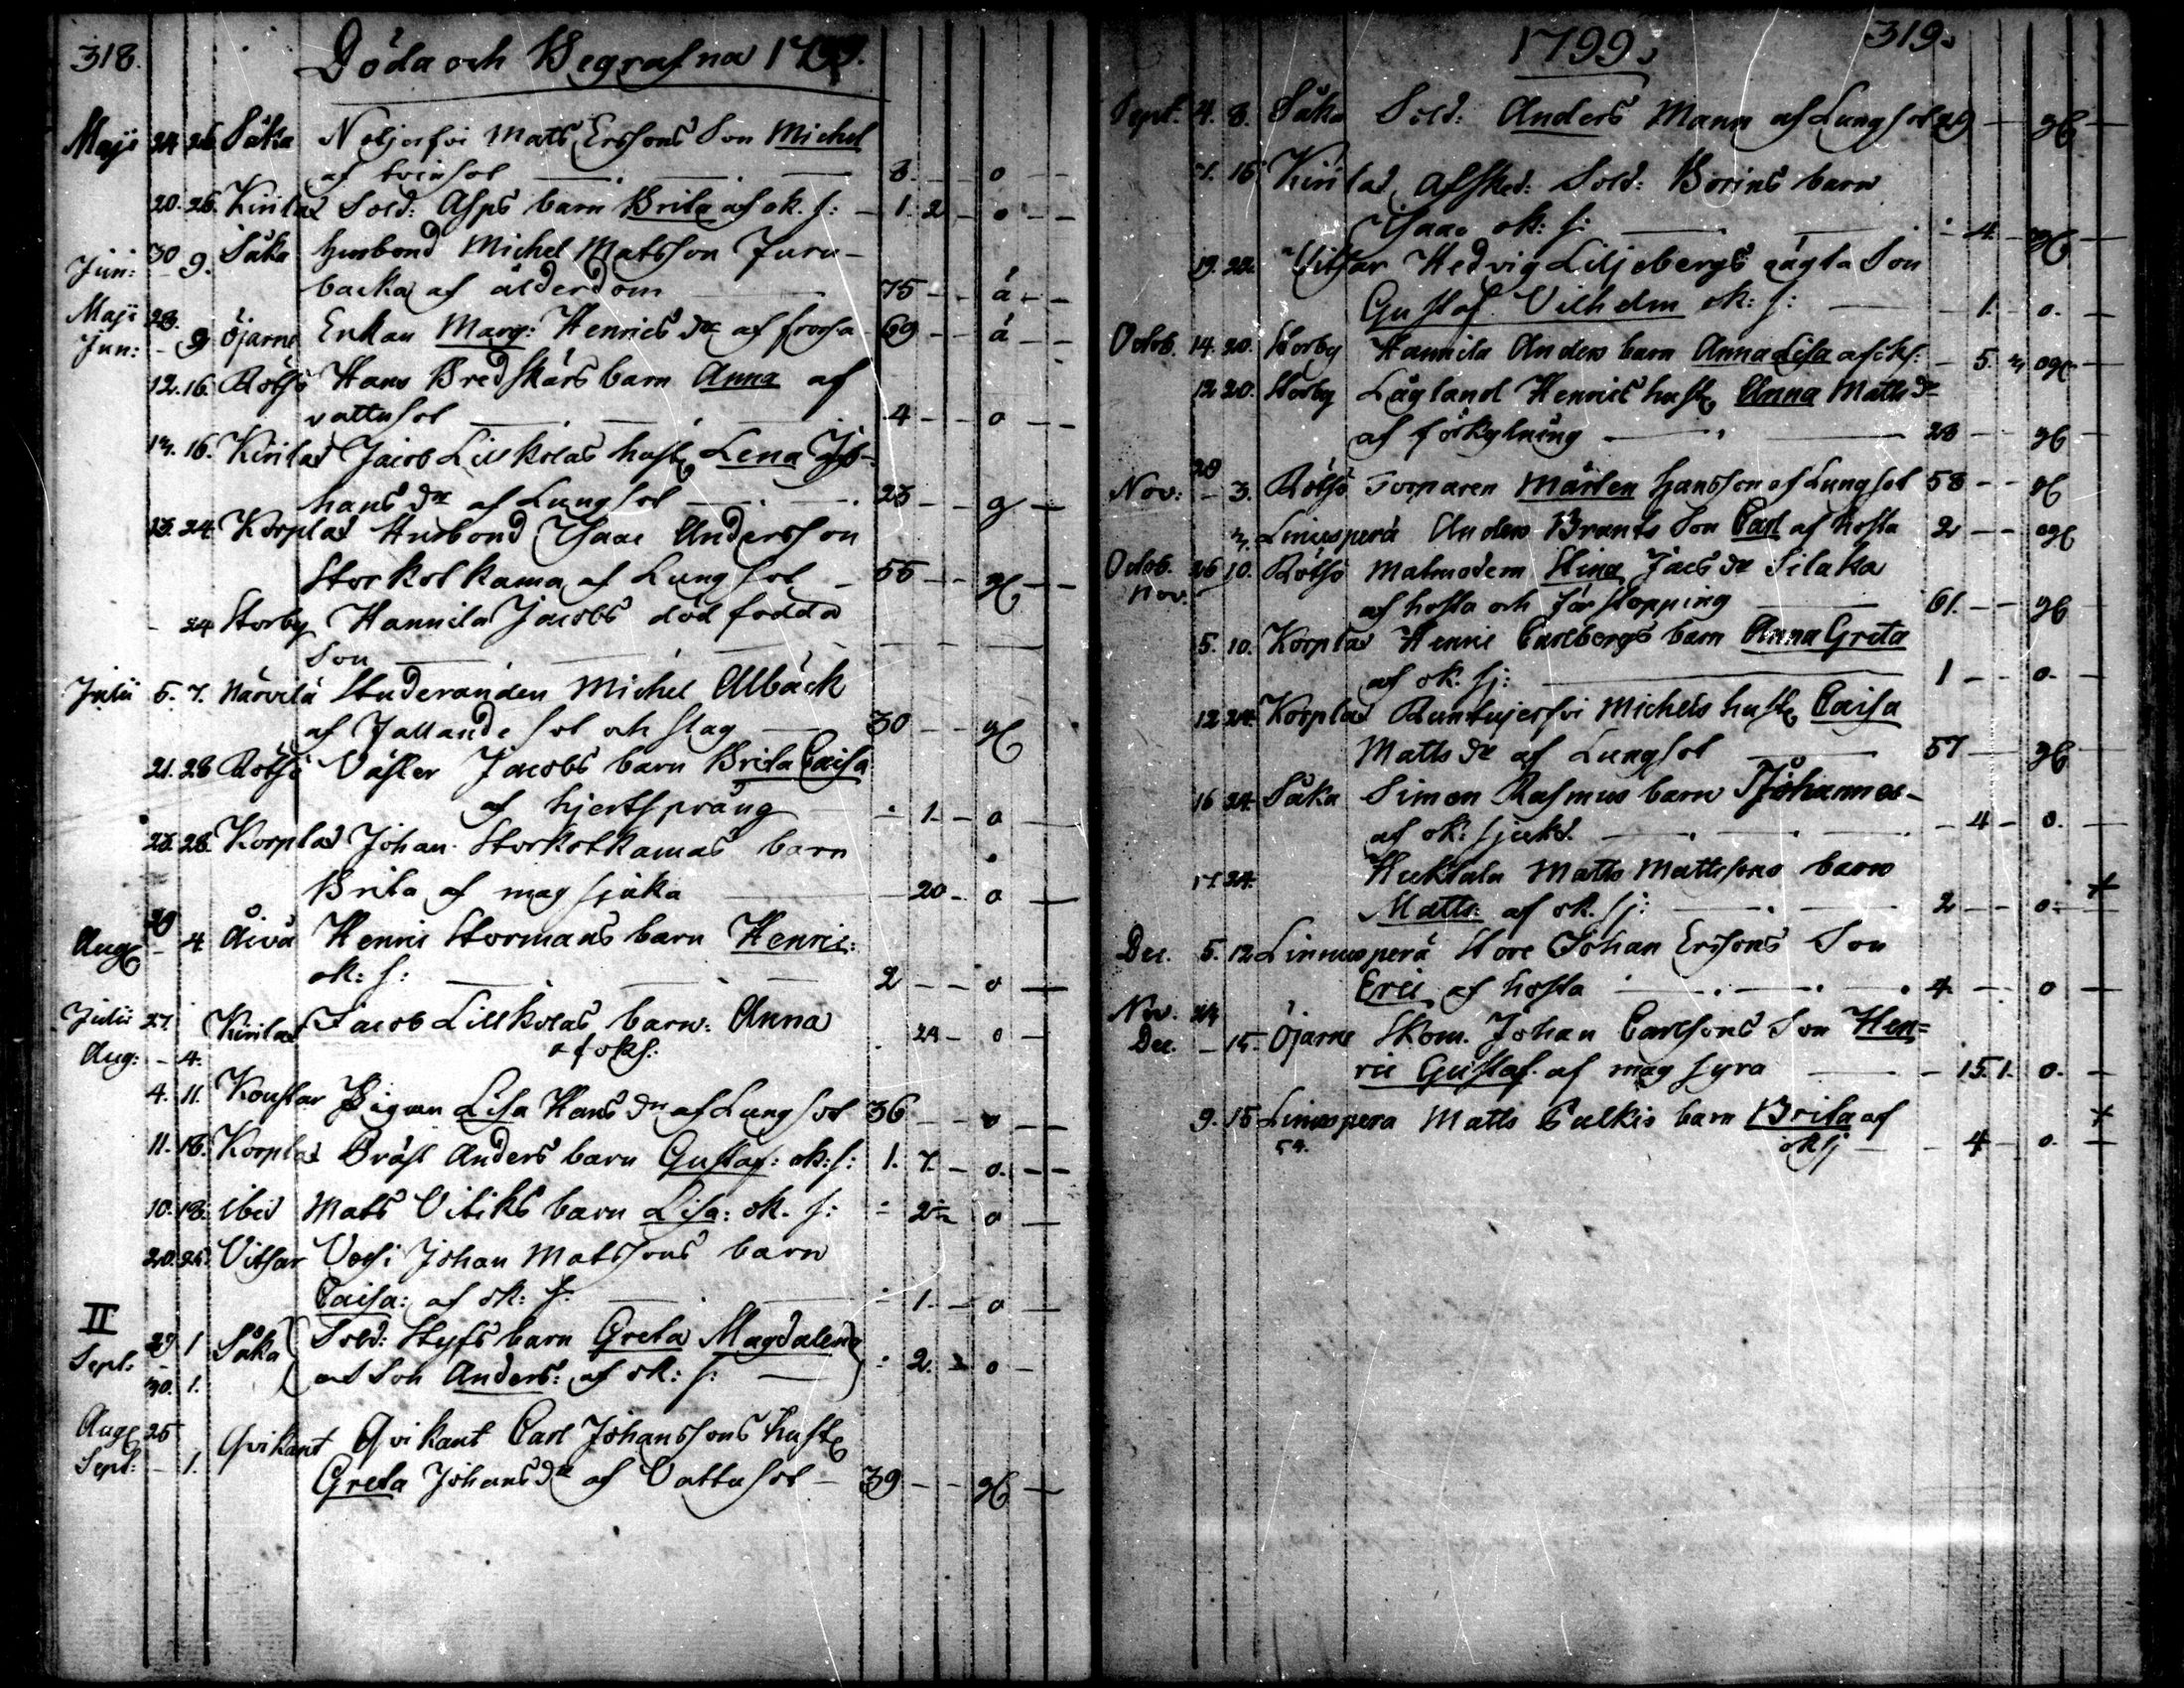 318.
Döda och Begrafna 1799.
Maji 24 26 Såka Neljerfvi Mats Erssons Son Michel
af tvinsot 3. o
20. 26. Kirilax Sold: Asps barn Brita af ok. s: 1. 2 o
Jun: 30 9. Såka husbond Michel Matsson Furu-
backa af ålderdom 75 å
Maji 28.
Jun: 9 Öjarne Enkan Marg: Henrics dr af frossa 69 å
12. 16. Rötsö Hans Bredskärs barn Anna af
vattusot 4 o
16. Kirilax Jacob Lillkolas hust Lena Jo-
hans dr af Lungsot 23 g
23. 24 Korplax Husbond Isaac Andersson
Storkolkama af Lungsot 55 g
24 Storby Hannila Jacobs död födda
Son
Julii 5. 7. Närvilä Studeranden Michel Allbäck
af Fallande sot och slag 30 g
21. 28 Rötsö Väster Jacobs barn Brita Caisa
af hjertsprång 1. o
23. 28. Korplax Johan Storkolkamas barn
Brita af magsjuka 20 o
Aug 29 4 Åivo Henric Stormans barn Henric:
ok: s: 2 o
Julii 27. Kirilax Jacob Lillkolas barn: Anna 24 o
Aug: 4. af ok s:
4. 11. Konstar Pigan Lisa Hans dr af Lungsot 36 o
11. 18. Korplax Bräst Anders barn Gustaf: ok: s: 1. 7. o.
10. 18. ibid Mats Vitiks barn Lisa: ok. s: o
20. 25. Vitsar Johan Matssons barn
Caisa: af ok: s: 1. o
II
Sept: 29 1 Såka Sold: Styfs barn Greta Magdalena
30. 1. och Anders: af ok: s: 2. o
Aug 25
Sept: 1. Qvikant Qvikant Carl Johanssons hust
Greta Johans dr af Vattusot 39 g
1799.
319.
Sept. 4. 8. Såka Sold: Anders Mann af Lungsot g
7. 15 Kirilax Afsked: Sold: Borins barn
Isaac ok: s: 4. g
19. 22. Vitsar Hedvig Liljebergs oägta Son
Gustaf Vilhelm ok: s: 1. o.
Octob. 14. 20. Storby Hannila Anders barn Anna Lisa af ok s: 5.
12 20. Storby Lågland Henrics hust Anna Matts dr
af förkylning 28 g
Nov: 28 3. Rötsö Torparen Mårten Hansson af Lungsot 58 g
Linusperä Anders Brants Son Carl af hosta 2
Octob. 26 10. Rötsö Malmodern Stina Jacs dr Silaka
Nov. af hosta och förstopping 61. g
5. 10. Korplax Henric Carlbergs barn Anna Greta
af ok. sj: 1 o.
12 24. Korplax Michels hust Caisa
Matts dr af Lungsot 57 g
16 24. Såka Simon Rasmus barn Johannes
af ok: sjukd. 4 o.
17. 24. Matts Mattssons barn
Matts: af ok. sj: 2 o. +
Dec. 5. 12 Linnusperä Store Johan Erssons Son
Eric af hosta 4. o
Nov. 24
Dec. 15. Öjarne Skom. Johan Carlsons Son Hen=
ric Gustaf. af magsyra 15. 1. o.
9. 15 Linusperä Matts Pulkis barn Brita af +
ok sj 4 o.